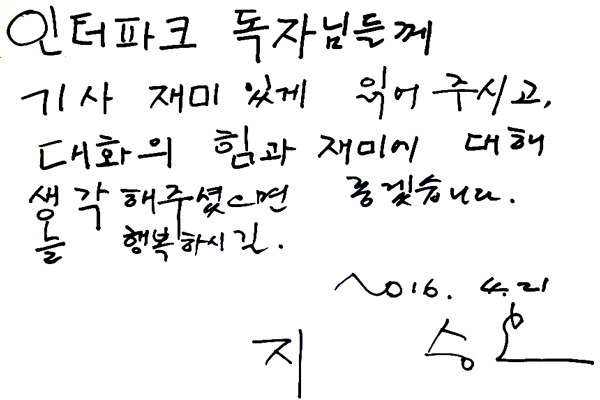 인터파크 독자님들께
기사 재미있게 읽어 주시고,
대화의 힘과 재미에 대해
생각해주셨으면 좋겠습니다.
늘 행복하시길.
2016. 4. 21
지 승호